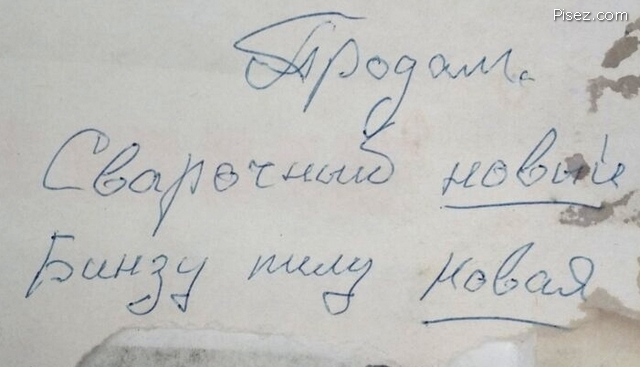 Pisez.com
Продам.
Сварочный новый
Бинзу пилу новая